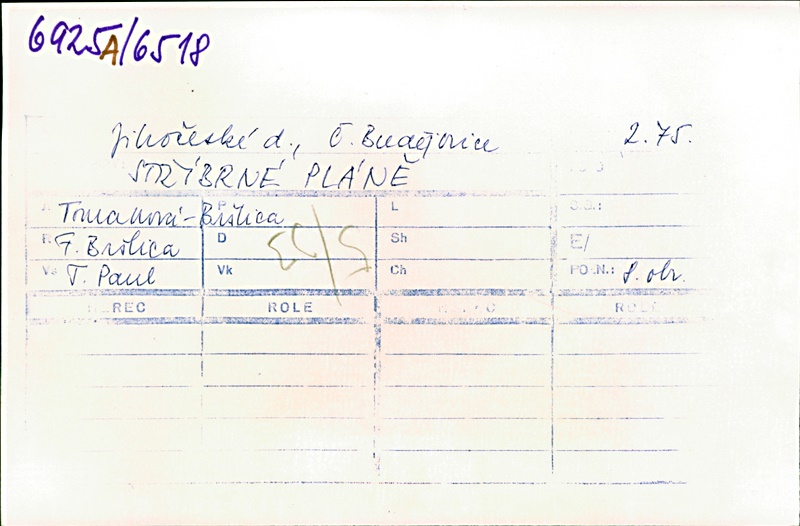 6925A/6518
Jihočeské d., Č. Budějovice 2.75.
STŘÍBRNÉ PLÁNĚ
Tomanová-Brślica P L
R F. Brślica D Sh E/
T. Paul Vk Ch PO N.: 8. obr.
HEREC ROLE ROLE